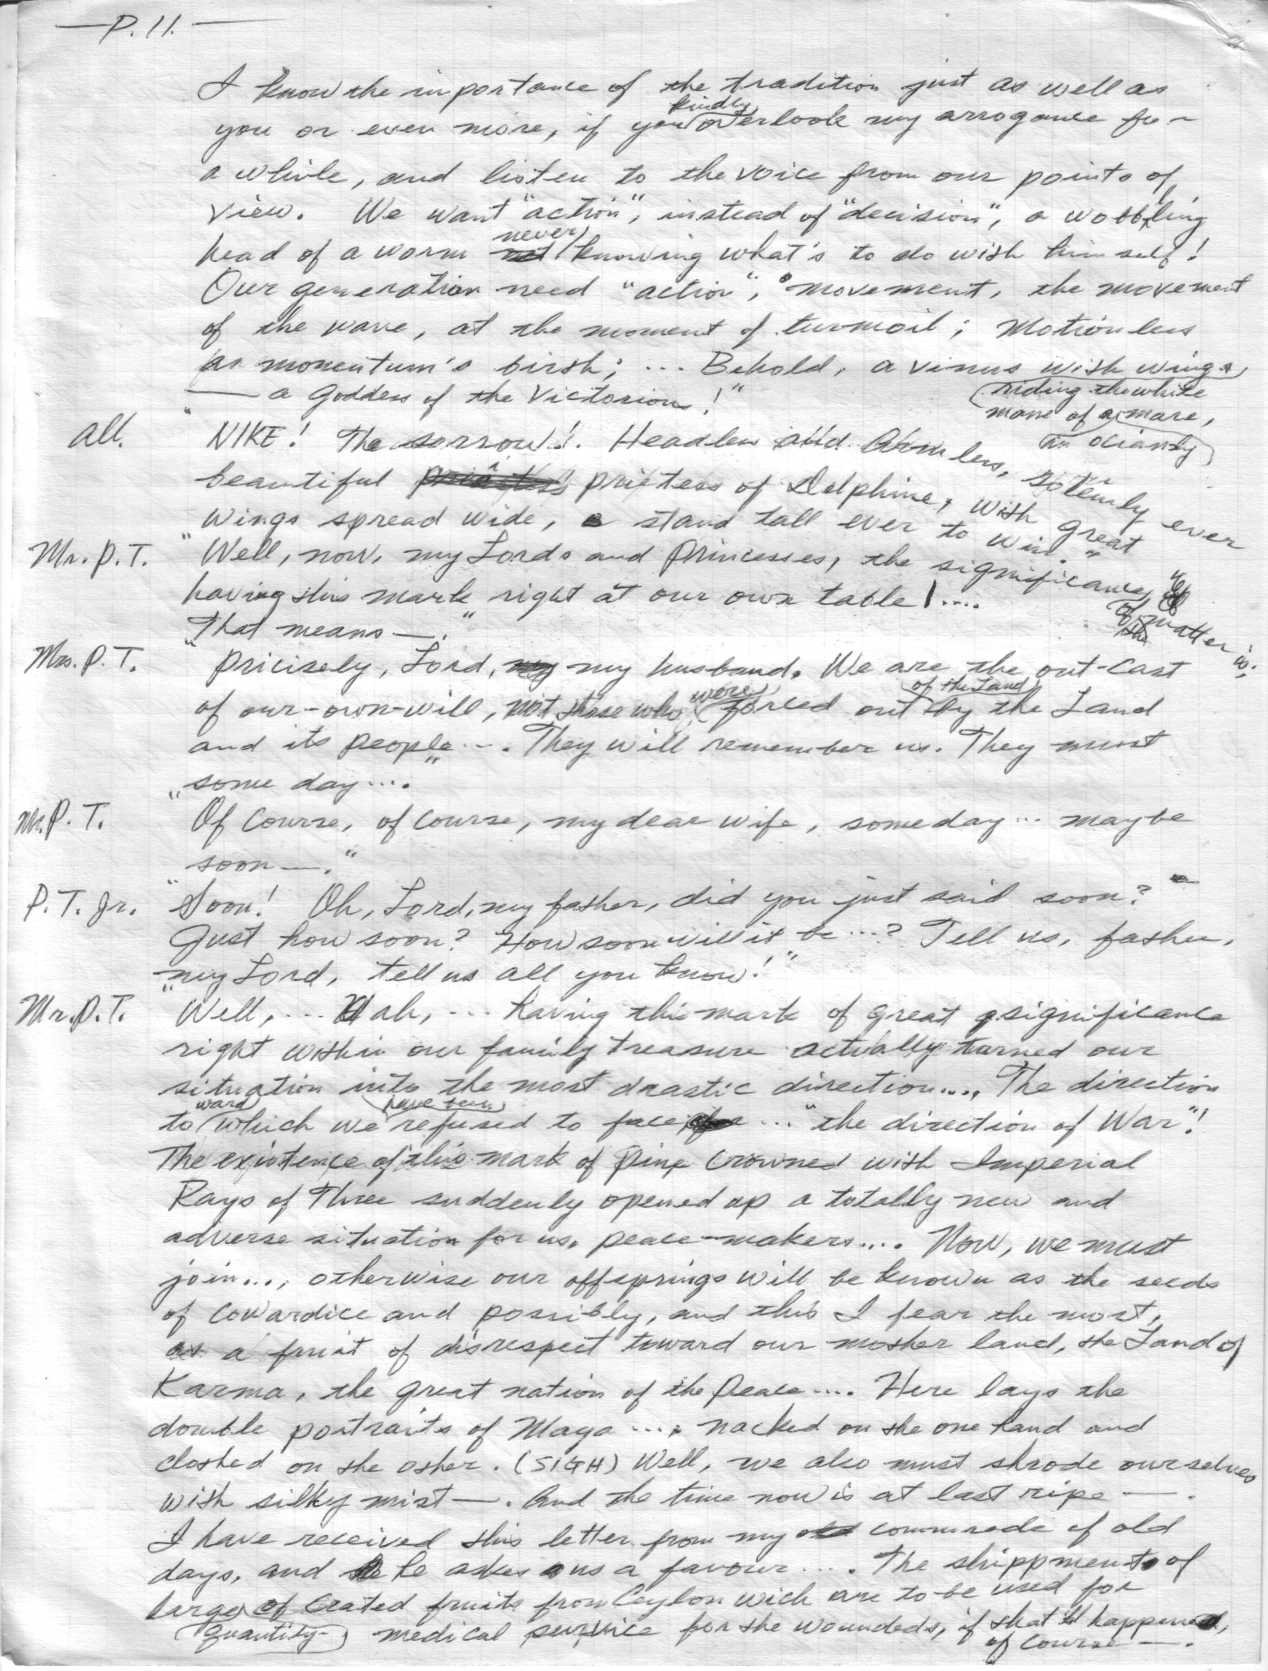 — P. 11. —
I know the importance of the tradition just as well as
kindly
you or even more, if you overlook my arrogance for
a while, and listen to the voice from our points of
view. We want "action", instead of "decision", a wobbling
never
head of a worm knowing what's to do with himself!
Our generation need "action", movement, the movement
of the wave, at the moment of turmoil; Motionless
as momentum's birth; ... Behold, a vinus with wings,
riding the white
mane of a mare,
— a goddess of the Victorious!"
All. "NIKE! The sorrow! Headless and Armless, solemly ever
beautiful prietess of Delphine, with great
wings spread wide, stand tall ever to win."
Mr. P.T. "Well, now, my Lords and Princesses, the significance of matter is;
having this mark right at our own table!....
That means —."
Mrs. P.T. "Pricisely, Lord, my husband. We are the out-cast
were of the Land
of our-own-will, not those who forced out by the Land
and its people —. They will remember us. They must
some day...."
Mr. P.T. "Of course, of course, my dear wife, someday... maybe
soon —."
P.T. Jr. "Soon! Oh, Lord, my father, did you just said soon?
Just how soon? How soon will it be...? Tell us, father,
my Lord, tell us all you know!"
Mr. P.T. "Well, ... ah, ... having this mark of great significance
right within our family treasure actually turned our
situation into the most drastic direction.... The direction
ward have been
to which we refused to face ... "the direction of War"!
The existence of this mark of Pine crowned with Imperial
Rays of Three suddenly opened up a totally new and
adverse situation for us, peace-makers.... Now, we must
join..., otherwise our offsprings will be known as the seeds
of cowardice and possibly, and this I fear the most,
as a fruit of disrespect toward our mother land, the Land of
Karma, the great nation of the Peace.... Here lays the
double portraits of Maya ...., nacked on the one hand and
clothed on the other. (SIGH) Well, we also must shrode ourselves
with silky mist —. And the time now is at last ripe —.
I have received this letter from my commrade of old
days, and he askes us a favour.... The shippments of
large
quantity of Crated fruits from Ceylon wich are to be used for
medical service for the woundeds, if that happened,
of course —.